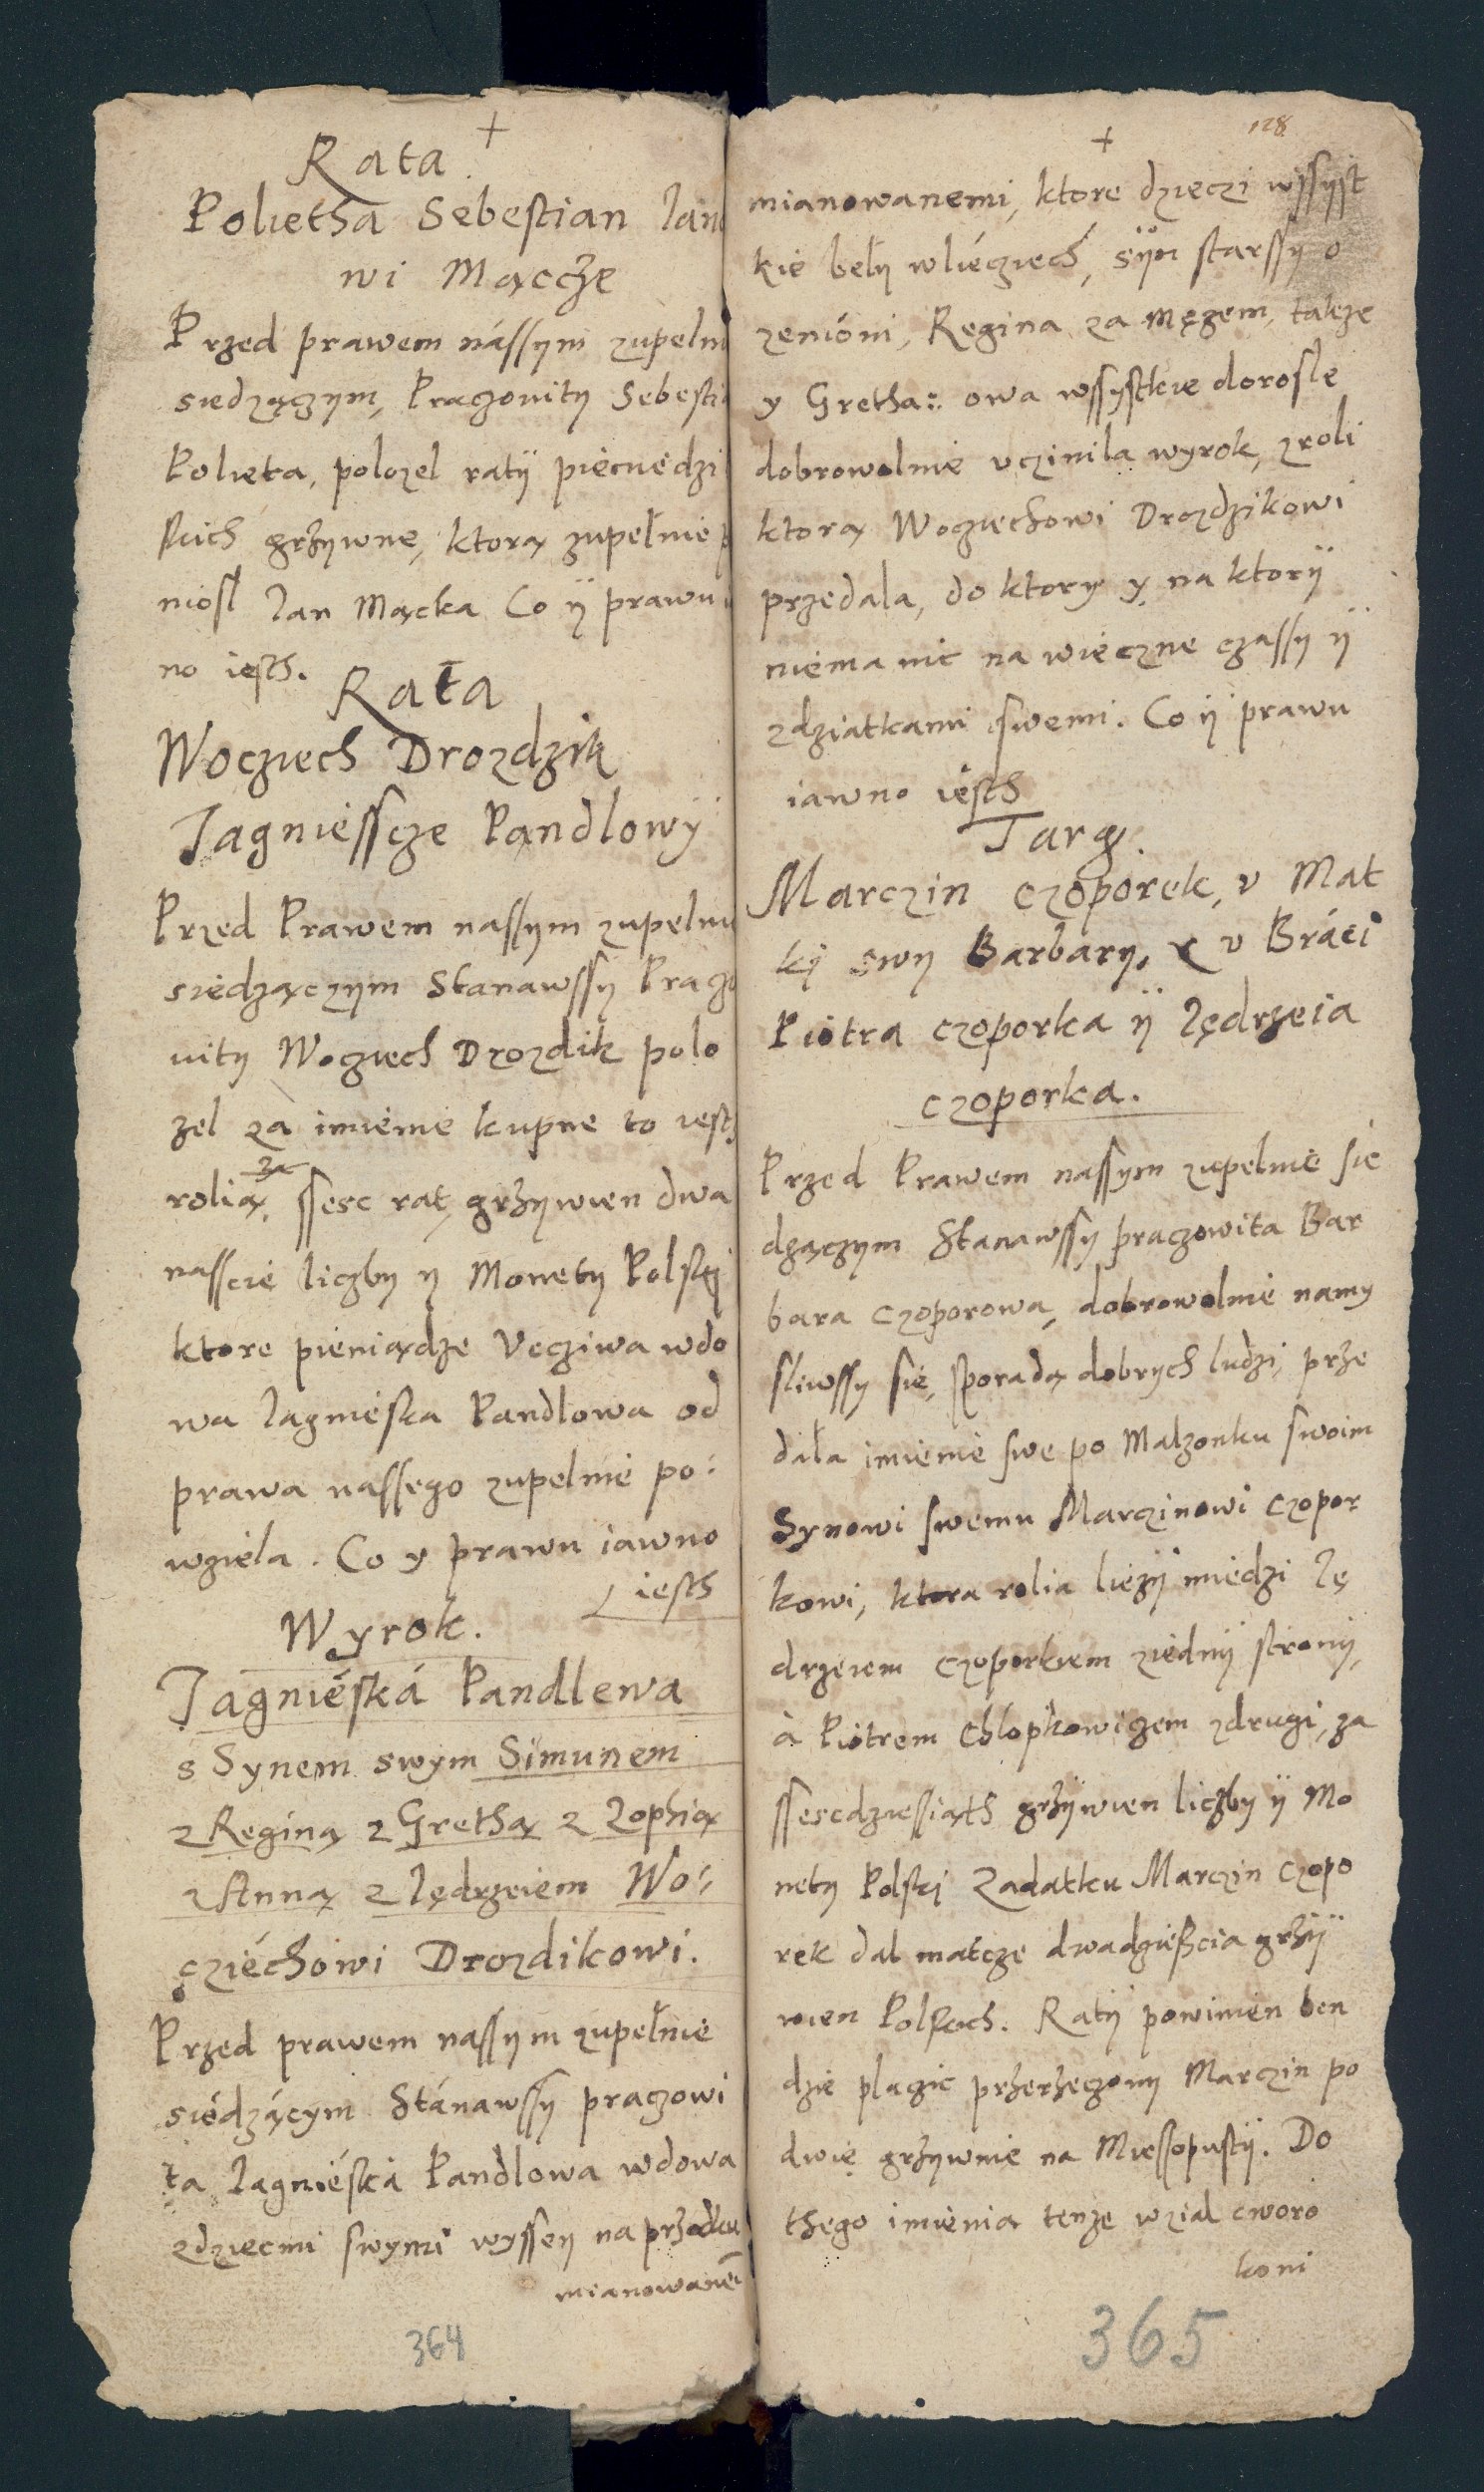 +
Rata
Polietha Sebestian Jano
wi Mąccze
Przed prawem nássym zupelni
siedzączym, Praczovity Sebesti
Polieta, polozel ratÿ piecniedzi
skich grzywnę, ktorą zupełnie
niosl Jan Mącka Co ÿ prawu
no iesth.
Rata
Wocziech Drozdzik
Jagniessce Pandlowÿ
Przed Prawem nassym zupelnie
siedzączym Stanawssy Praczo
vity Wocziech Drozdik polo
zel za imienie kupne to iest
rolią, ssesc rat, grzywien dwa
nascie liczby y Monety Polskij
ktore pieniądze Vcziwa wdo
wa Jagnieska Pandlowa od
prawa nassego zupelnie po:
wziela. Co y prawu iawno
iesth
Wyrok.
Jagniéská Pandlewa
s Synem swym Simunem
z Reginą z Grethą z Zophią
z Anną z Jędrzeiem Wo:
cziéchowi Drozdikowi.
Przed prawem nassym zupełnie
siédzącym Stánawssy praczowi
ta Jagniéská Pandlowa wdowa
zdziecmi swymi wyssey na przodku
mianowanemi
364
128
+
mianowanemi, ktore dzieczi wssyst
kie beły wliécziech, sÿn starssy o
zenióni, Regina za mężem, także
y Gretha: owa wssystkie dorosle
dobrowolnie vczinila wyrok, zroli
ktorą Wocziechowi Drozdzikowi
przedala, do ktory y na ktorÿ
niema nic na wieczne czassy ÿ
zdziatkami swemi. Co ÿ prawu
iawno iesth
Targ.
Marczin czoporek, v Mat
ki swy Barbary, v Bráci
Piotra czoporka ÿ Jędrzeia
czoporka.
Przed Prawem nassym zupelnie sie
dzączym Stanawssy praczowita Bar
bara czoporowa, dobrowolnie namy
sliwssy sie, sporadą dobrych ludzi, prze
dała imienie swe po Malzonku swoim
Synowi swemu Marczinowi czopor
kowi, ktora rolia lieżÿ miedzi Ję
drzeiem czoporkiem ziednÿ stronÿ,
à Piotrem Chlopkowiczem zdrugi, za
ssescdziesiąth grzÿwien liczby ÿ Mo
nety Polskij Zadatku Marczin czopo
rek dal matcze dwadzieścia grzÿ
wien Polskich. Ratÿ powinien ben
dzie placic przerzeczony Marczin po
dwie grzywnie na Miessopustÿ. Do
thego imienia tenze wzial cworo
koni
365